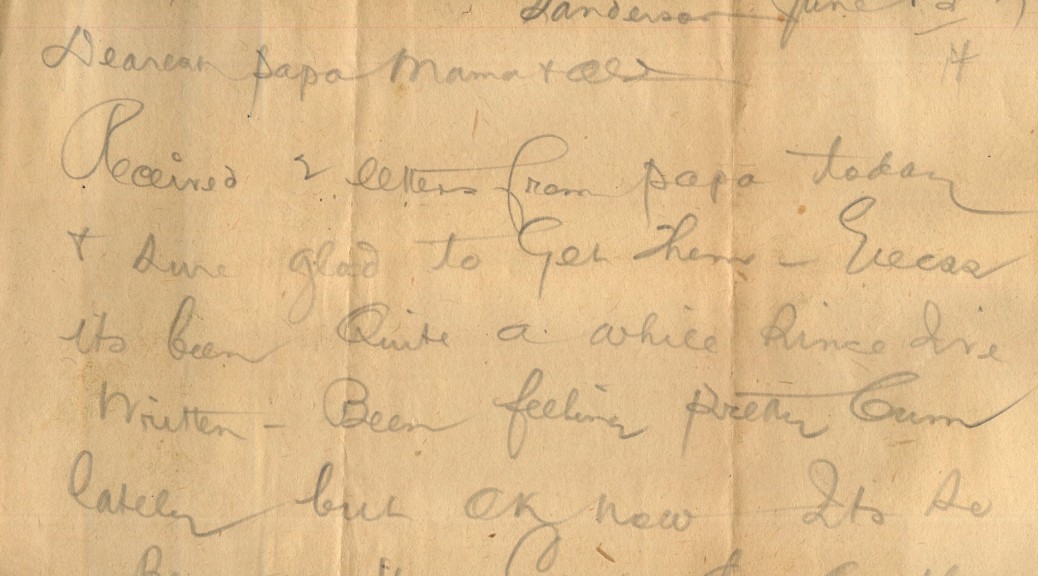 Sanderson June
Dearest Papa Mama + all
Received 2 letters from papa today
+ sure glad to Get them – Guess
its been Quite a while since Ive
Written – Been feeling pretty Bum
lately but OK now Its so